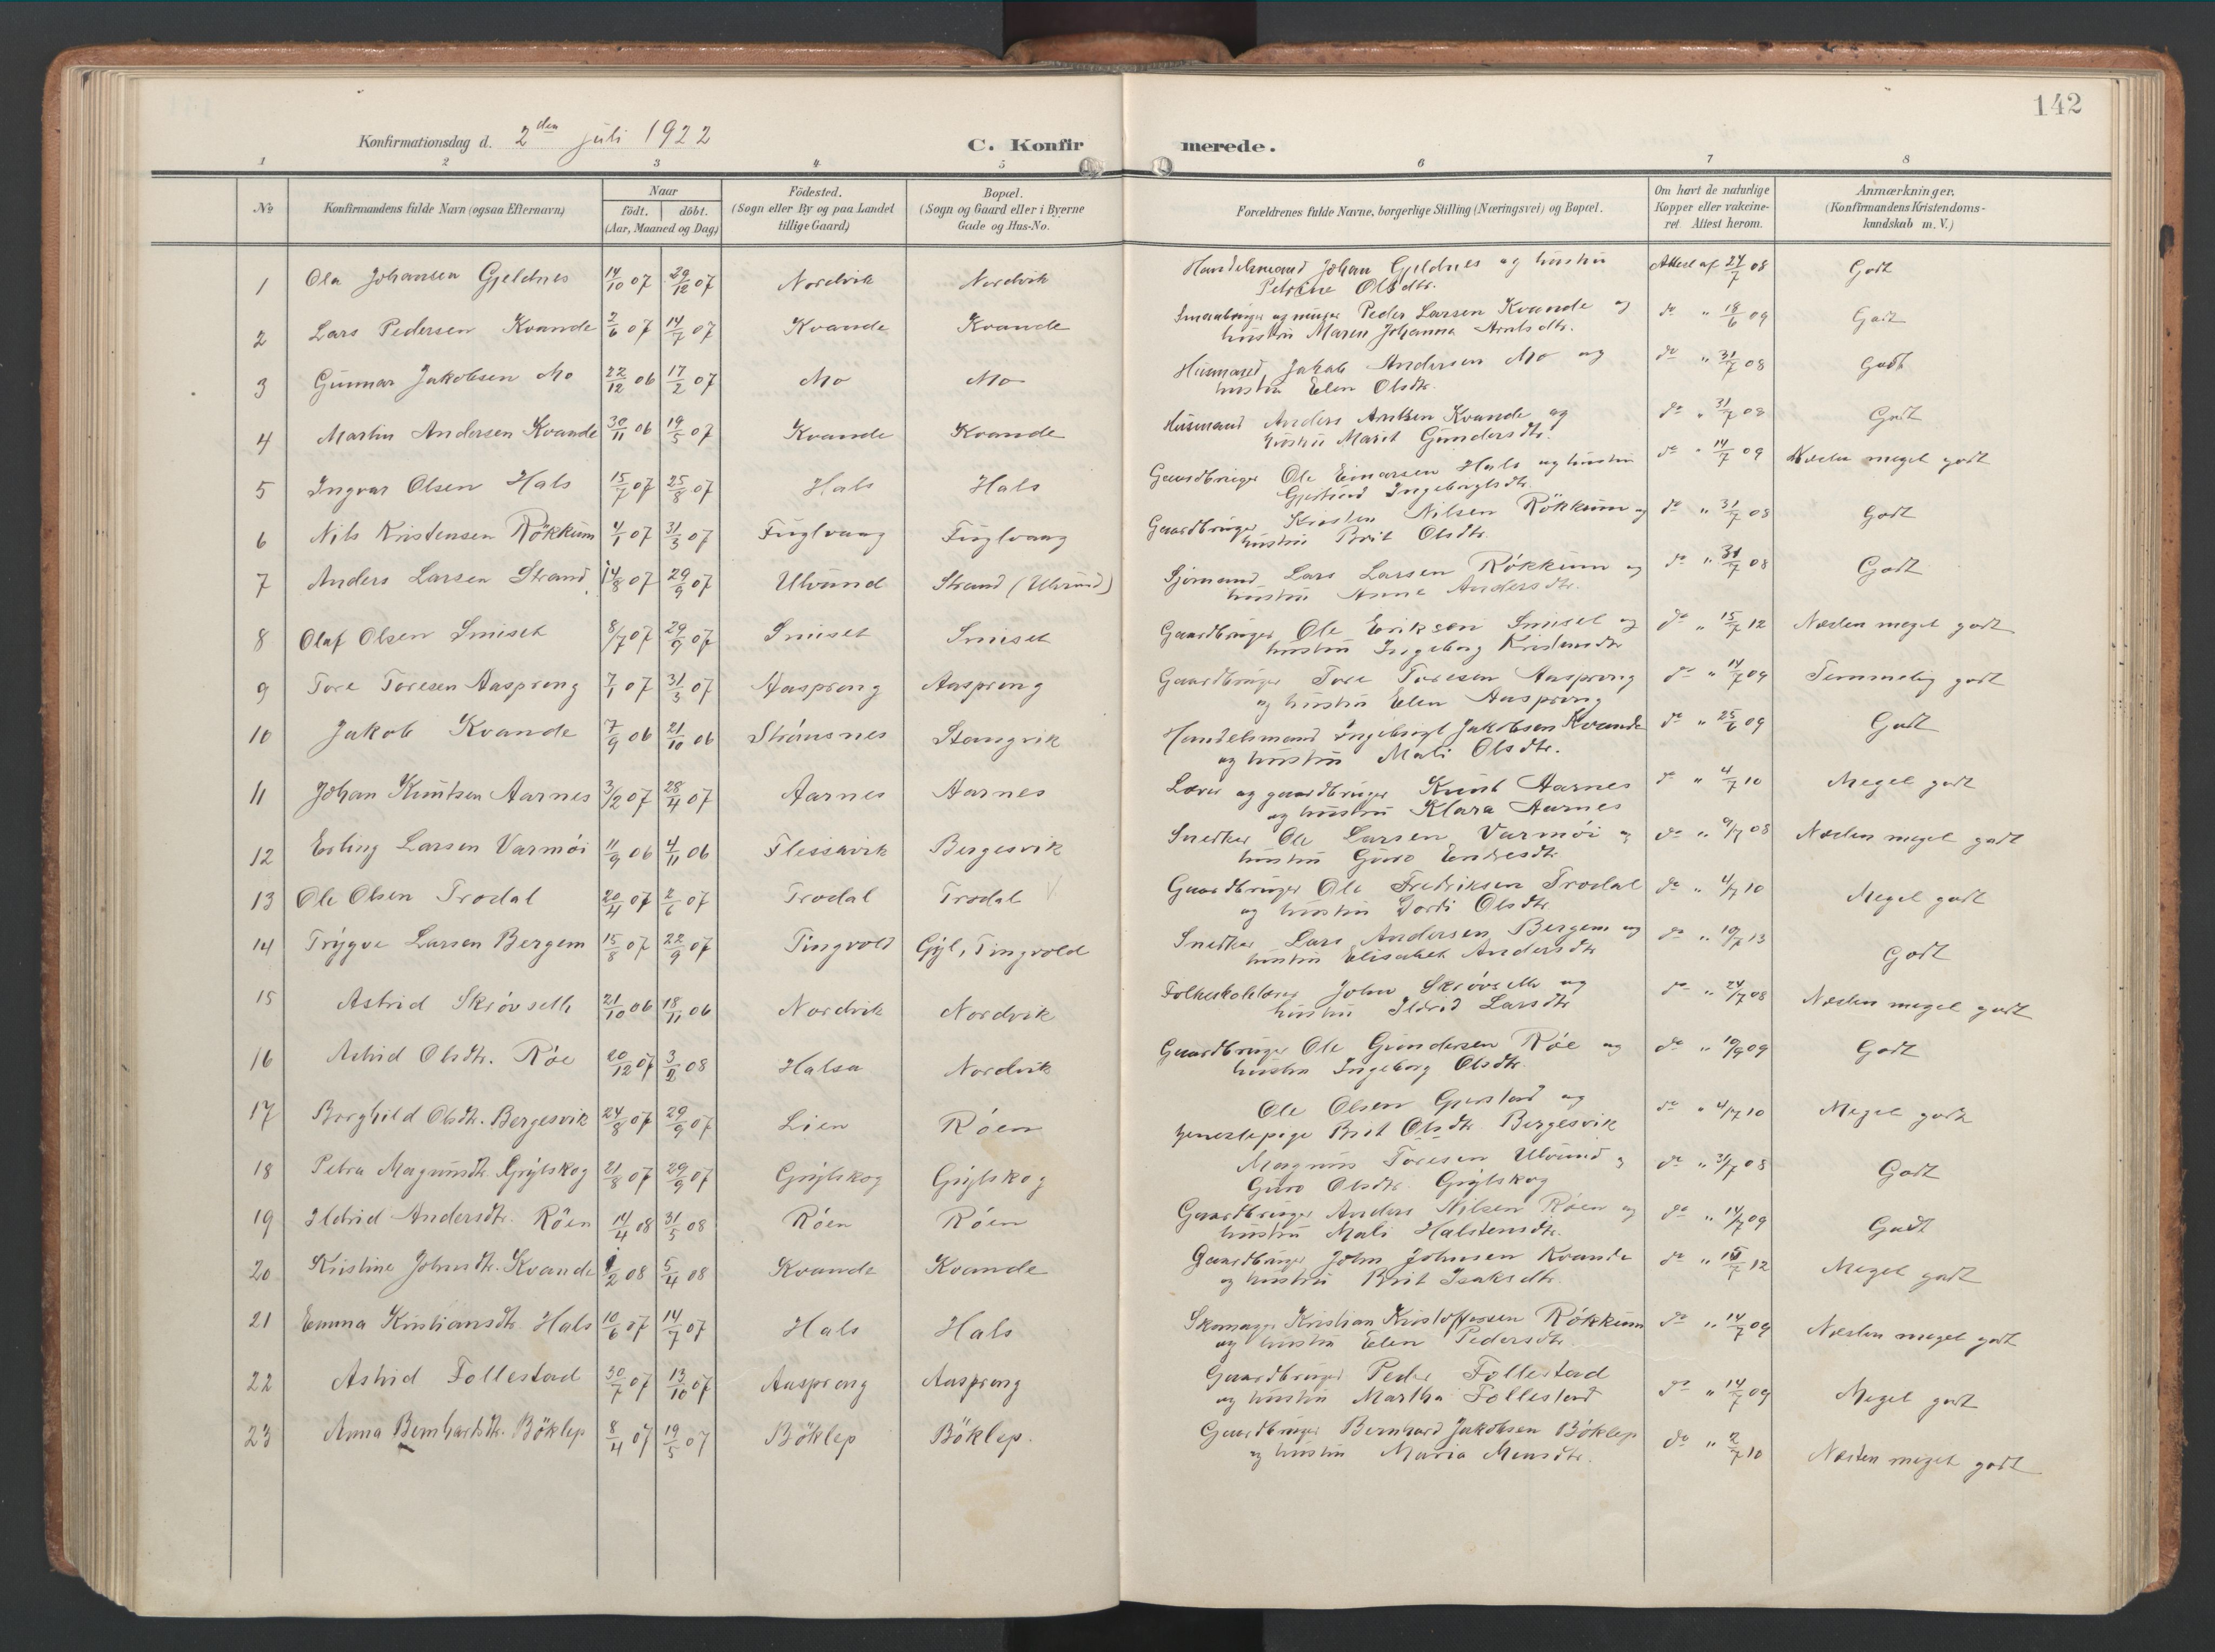 142
Konfirmationsdag d. 2den juli 1922
C. Konfirmerede.
1 2 3 4 5 6 7 8
No Konfirmandens fulde Navn (ogsaa Efternavn) Naar födt. döbt. (Aar, Maaned og Dag) Födested. (Sogn eller By og paa Landet tillige Gaard) Bopæl. (Sogn og Gaard eller i Byerne Gade og Hus-No. Forældrenes fulde Navne, borgerlige Stilling (Næringsvei) og Bopæl. Om havt de naturlige Kopper eller vakcineret. Attest herom. Anmærkninger. (Konfirmandens Kristendomskundskab m. V.)
1 Ola Johansen Gjeldnes 14/10 07 29/12 07 Nordvik Nordvik Handelsmand Johan Gjeldnes og hustru Petrine Olsdtr. Attest af 24/7 08 Godt
2 Lars Pedersen Kvande 2/6 07 14/7 07 Kvande Kvande Peder Larsen Kvande og hustru Maren Johanna Arntsdtr. do " 18/6 09 Godt
3 Gunnar Jakobsen Mo 22/12 06 17/2 07 Mo Mo Husmand Jakob Andersen Mo og hustru Elen Olsdtr. do " 31/7 08 Godt
4 Martin Andersen Kvande 30/11 06 19/5 07 Kvande Kvande Husmand Anders Arntsen Kvande og hustru Marit Gundersdtr. do " 31/7 08 Godt
5 Ingvar Olsen Hals 15/7 07 25/8 07 Hals Hals Gaardbruger Ole Einarsen Hals og hustru Gjertrud Ingebrigtsdtr. do " 14/7 09 Næsten meget godt
6 Nils Kristensen Rökkum 4/1 07 31/3 07 Fuglvaag Fuglvaag Gaardbruger Kristen Nilsen Rökkum og hustru Brit Olsdtr. do " 31/7 08 Godt
7 Anders Larsen Strand 14/8 07 29/9 07 Ulvund Strand (Ulvund) Sjømand Lars Larsen Rökkum og hustru Anne Andersdtr. do " 31/7 08 Godt
8 Olaf Olsen Smiset 8/7 07 29/9 07 Smiset Smiset Gaardbruger Ole Eriksen Smiset og hustru Ingeborg Kristensdtr do " 15/7 12 Næsten meget godt
9 Tore Toresen Aasprong 7/1 07 31/3 07 Aasprong Aasprong Gaardbruger Tore Toresen Aasprong og hustru Elen Aasprong do " 14/7 09 Temmelig godt
10 Jakob Kvande 7/9 06 21/10 06 Strömsnes Stangvik Handelsmand Ingebrigt Jakobsen Kvande og hustru Mali Olsdtr. do " 25/6 09 Godt
11 Johan Knutsen Aarnes 3/2 07 28/4 07 Aarnes Aarnes Lærer og gaardbruger Knut Aarnes og hustru Klara Aarnes do " 4/7 10 Meget godt
12 Erling Larsen Varmöi 11/9 06 4/11 06 Flessavik Bergesvik Snedker Ole Larsen Varmöi og hustru Guro Endresdtr do " 9/7 08 Næsten meget godt
13 Ole Olsen Trodal 20/4 07 2/6 07 Trodal Trodal Gaardbruger Ole Fredriksen Trodal og hustru Gorði Olsdtr do " 4/7 10 Meget godt
14 Trygve Larsen Bergem 15/8 07 22/9 07 Tingvold Gyl, Tingvold Snedker Lars Andersen Bergem og hustru Elisabet Andersdtr do " 10/7 13 Godt
15 Astrid Skrövseth 21/10 06 18/11 06 Nordvik Nordvik Folkeskolelærer John Skrövseth og hustru Ildrid Larsdtr do " 24/7 08 Næsten meget godt
16 Astrid Olsdtr. Röe 20/12 07 3/2 08 Halsa Nordvik Gaardbruger Ole Gundersen Röe og hustru Ingeborg Olsdtr. do " 10/9 09 Godt
17 Borghild Olsdtr. Bergesvik 24/8 07 29/9 07 Lien Röen Ole Olsen Gjerstad og tjenestepige Brit Olsdtr Bergesvik do " 4/7 10 Meget godt
18 Petra Magnusdtr. Grytskog 21/8 07 29/9 07 Grytskog Grytskog Magnus Toresen Ulvund og Guro Olsdtr. Grytskog do " 31/7 08 Godt
19 Ildrid Andersdtr. Röen 14/4 08 31/5 08 Röen Röen Gaardbruger Anders Nilsen Röen og hustru Mali Halstensdtr. do " 14/7 09 Godt
20 Kristine Johnsdtr. Kvande 1/2 08 5/4 08 Kvande Kvande Gaardbruger John Johnsen Kvande og hustru Brit Isaksdtr. do " 15/7 12 Meget godt
21 Emma Kristiansdtr Hals 10/6 07 14/7 07 Hals Hals Skomager Kristian Kristoffersen Rökkum og hustru Elen Pedersdtr. do " 14/7 09 Næsten meget godt
22 Astrid Follestad 30/7 07 13/10 07 Aasprong Aasprong Gaardbruger Peder Follestad og hustru Martha Follestad do " 14/7 09 Meget godt
23 Anna Bernhardsdtr. Böklep 8/4 07 19/5 07 Böklep Böklep. Gaardbruger Bernhard Jakobsen Böklep og hustru Maria Monsdtr. do " 2/7 10 Næsten meget godt